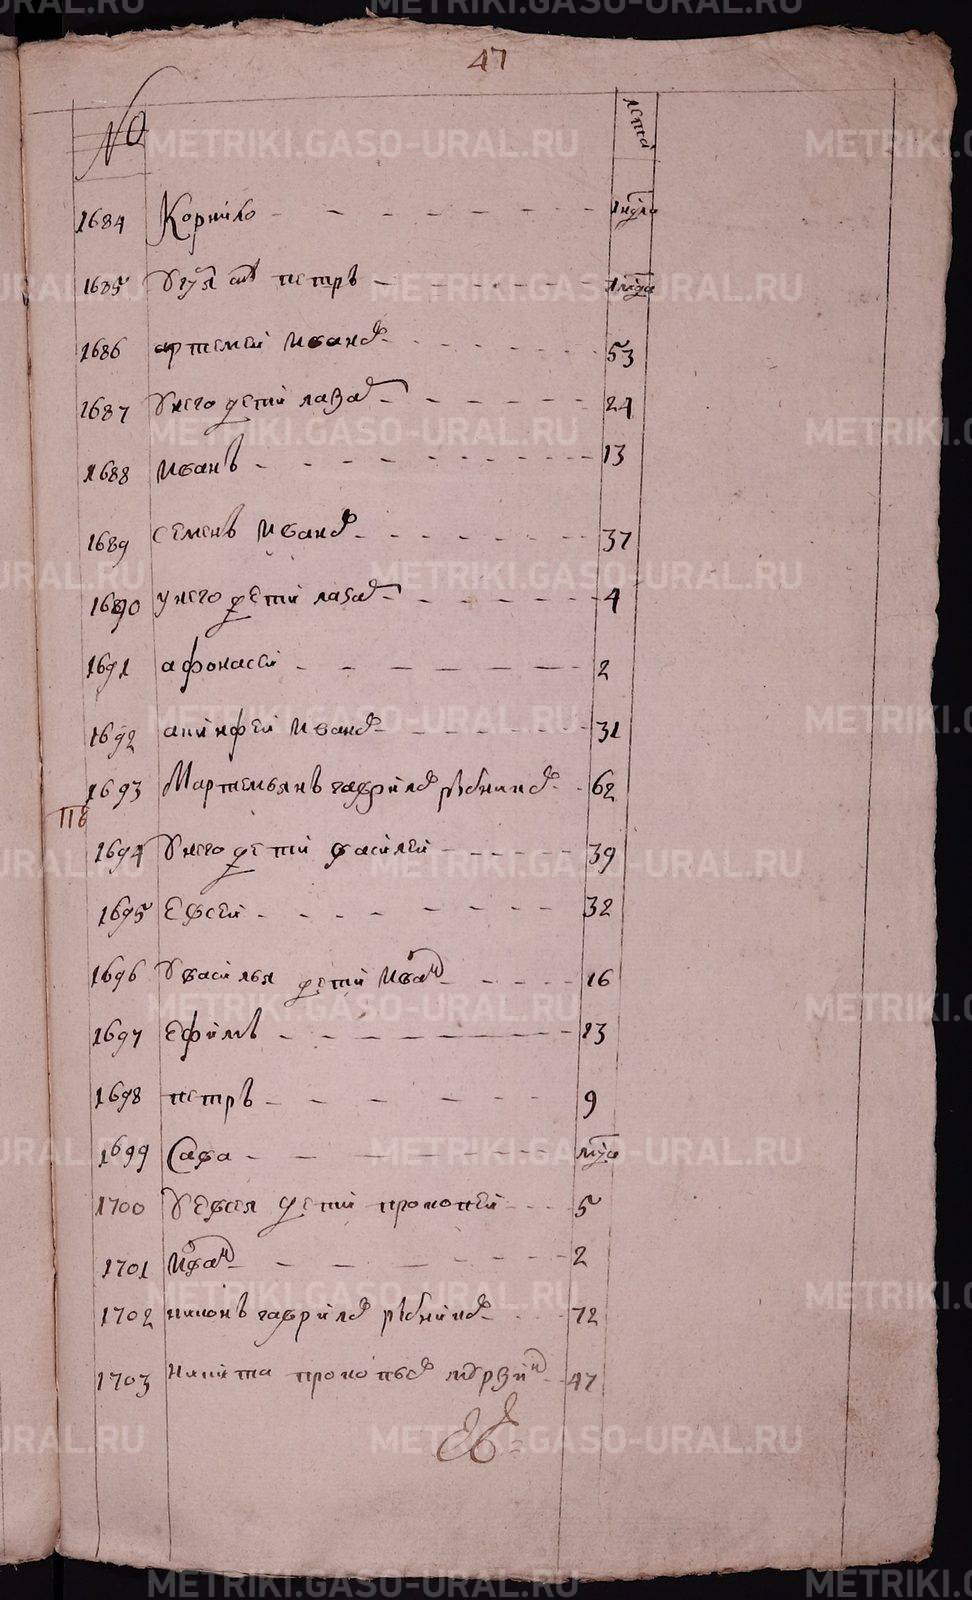 47
№ лета
1684 Корнило
1685 петръ
1686 артемей Иванов 53
1687 Унего дети лазар 24
1688 Иванъ 13
1689 семенъ Иванов 37
1690 унего дети лазар 4
1691 афонасей 2
1692 акинфей Иванов 31
1693 Мартемьянъ гаврилов рябинин 62
1694 Унего дети василей 39
1695 Евсей 32
1696 Увасилья дети Иван 16
1697 Ефимъ 13
1698 петръ 9
1699 Сава
1700 Уевсея дети прокопей 5
1701 Иван 2
1702 никонъ гаврилов 72
1703 Никита прокопьев мурзин 47
METRIKI.GASO-URAL.RU